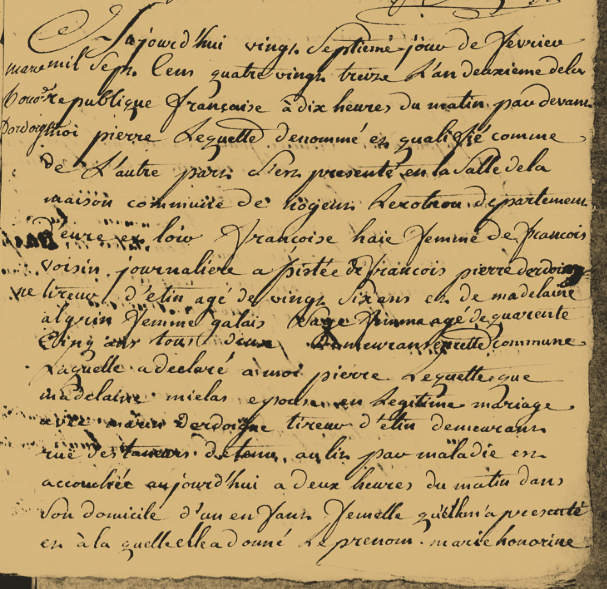 Aujourd'hui vingt Septieme jour de fevrier
marie mil Sept Cens quatre vingt treize L'an deuxieme de la
honor. republique françoise à dix heures du matin par devant
Derdoigne moi pierre Lequette denommé et qualifié comme
de L'autre part S'est presenté en la Salle de la
maison commune de nogent Lerotrou departement
d'eure et loir françoise haie femme de francois
voisin journaliere assistée de francois pierre derdoigne
tireur d'etin agé de vingt Six ans et de madelaine
femme galais agé de quarente
Cinq ans tous deux demeurant cette commune
Laquelle a declaré à moi pierre Lequette que
madelaine mielas epouse en Legitime mariage
avec marin Derdoigne tireur d'etin demeurant
rue des detenu au lit par maladie est
accouchée aujourd'hui a deux heures du matin dans
Son domicile d'un enfant femelle qu'elle m'a presenté
et à la quelle elle a donné Le prenom marie honorine